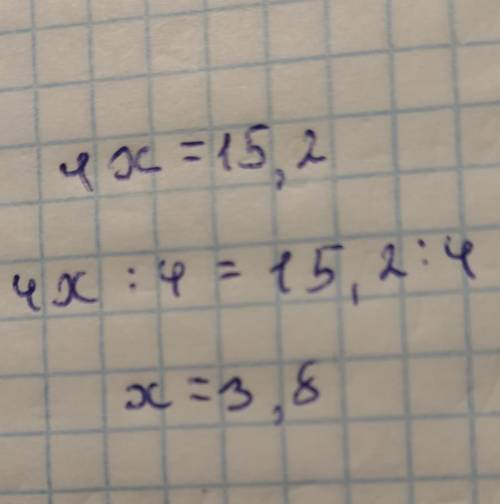 4x = 15,2
4x : 4 = 15,2 : 4
x = 3,8